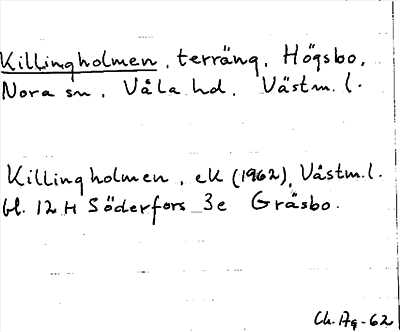 Killingholmen, terräng, Högsbo,
Nora sn, Våla hd, Västm. l.
Killingholmen, ek (1962), Västm. l.
bl. 12 H Söderfors 3e Gräsbo.
Ch. Ag -62